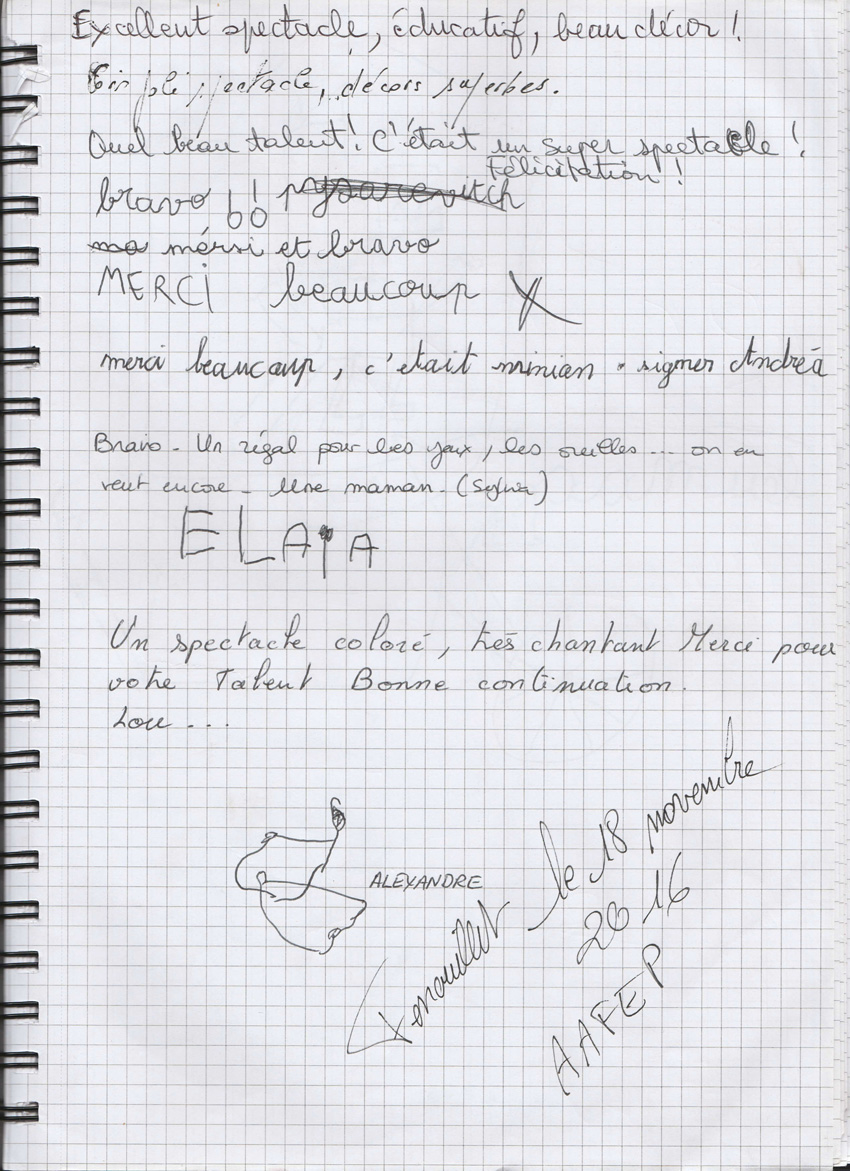 Excellent spectacle, éducatif, beau décor !
spectacle, décors superbes.
Quel beau talent ! C'était un super spectacle !
Félicitation !
bravo !!
mérsi et bravo
MERCI beaucoup
merci beaucaup, c'était minian . signer Andréa
Bravo - Un régal pour les yeux, les oreilles ... on en
veut encore - Une maman. (Sylvia)
ELAIA
Un spectacle coloré, très chantant Merci pour
votre Talent Bonne continuation.
Lou ...
ALEXANDRE
Fenouillet le 18 novembre
2016
AAFEP